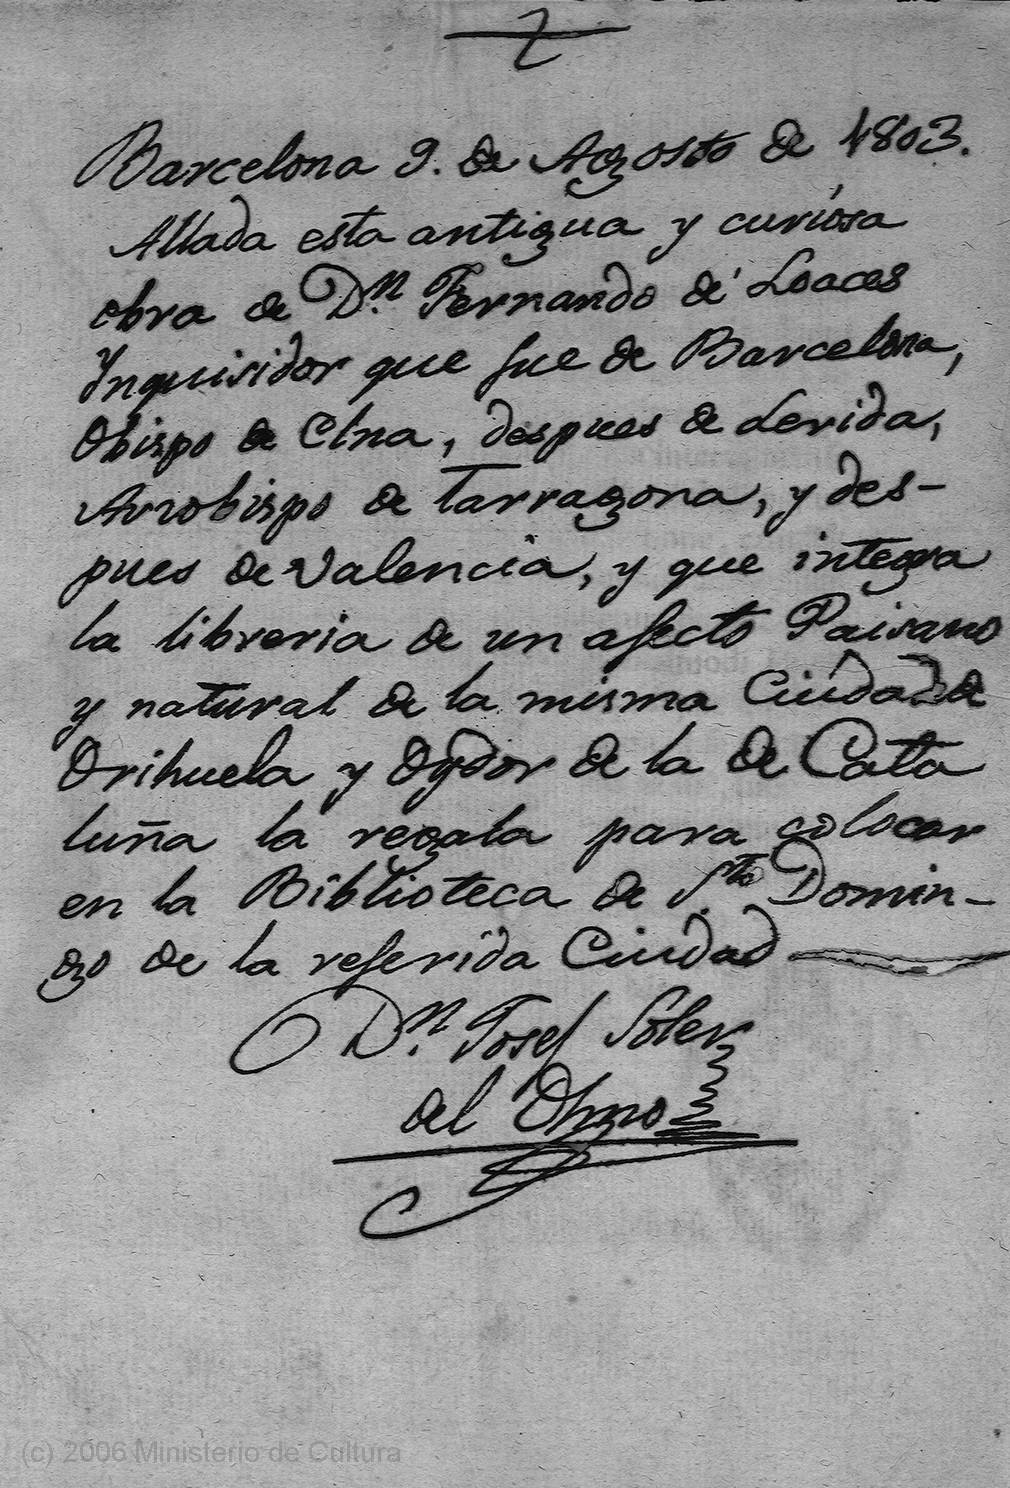 Barcelona 9. de Agosto de 1803.
Allada esta antigua y curiosa
obra de D.n Fernando de Loaces
Ynquisidor que fue de Barcelona,
Obispo de Elna, despues de Lerida,
Arzobispo de Tarragona, y des-
pues de Valencia, y que integra
la libreria de un afecto Paisano
y natural de la misma Ciudad de
Orihuela y Oydor de la de Cata
luña la regala para colocar
en la Biblioteca de S.to Domin-
go de la referida Ciudad
D.n Josef Soler
del Olmo
(c) 2006 Ministerio de Cultura